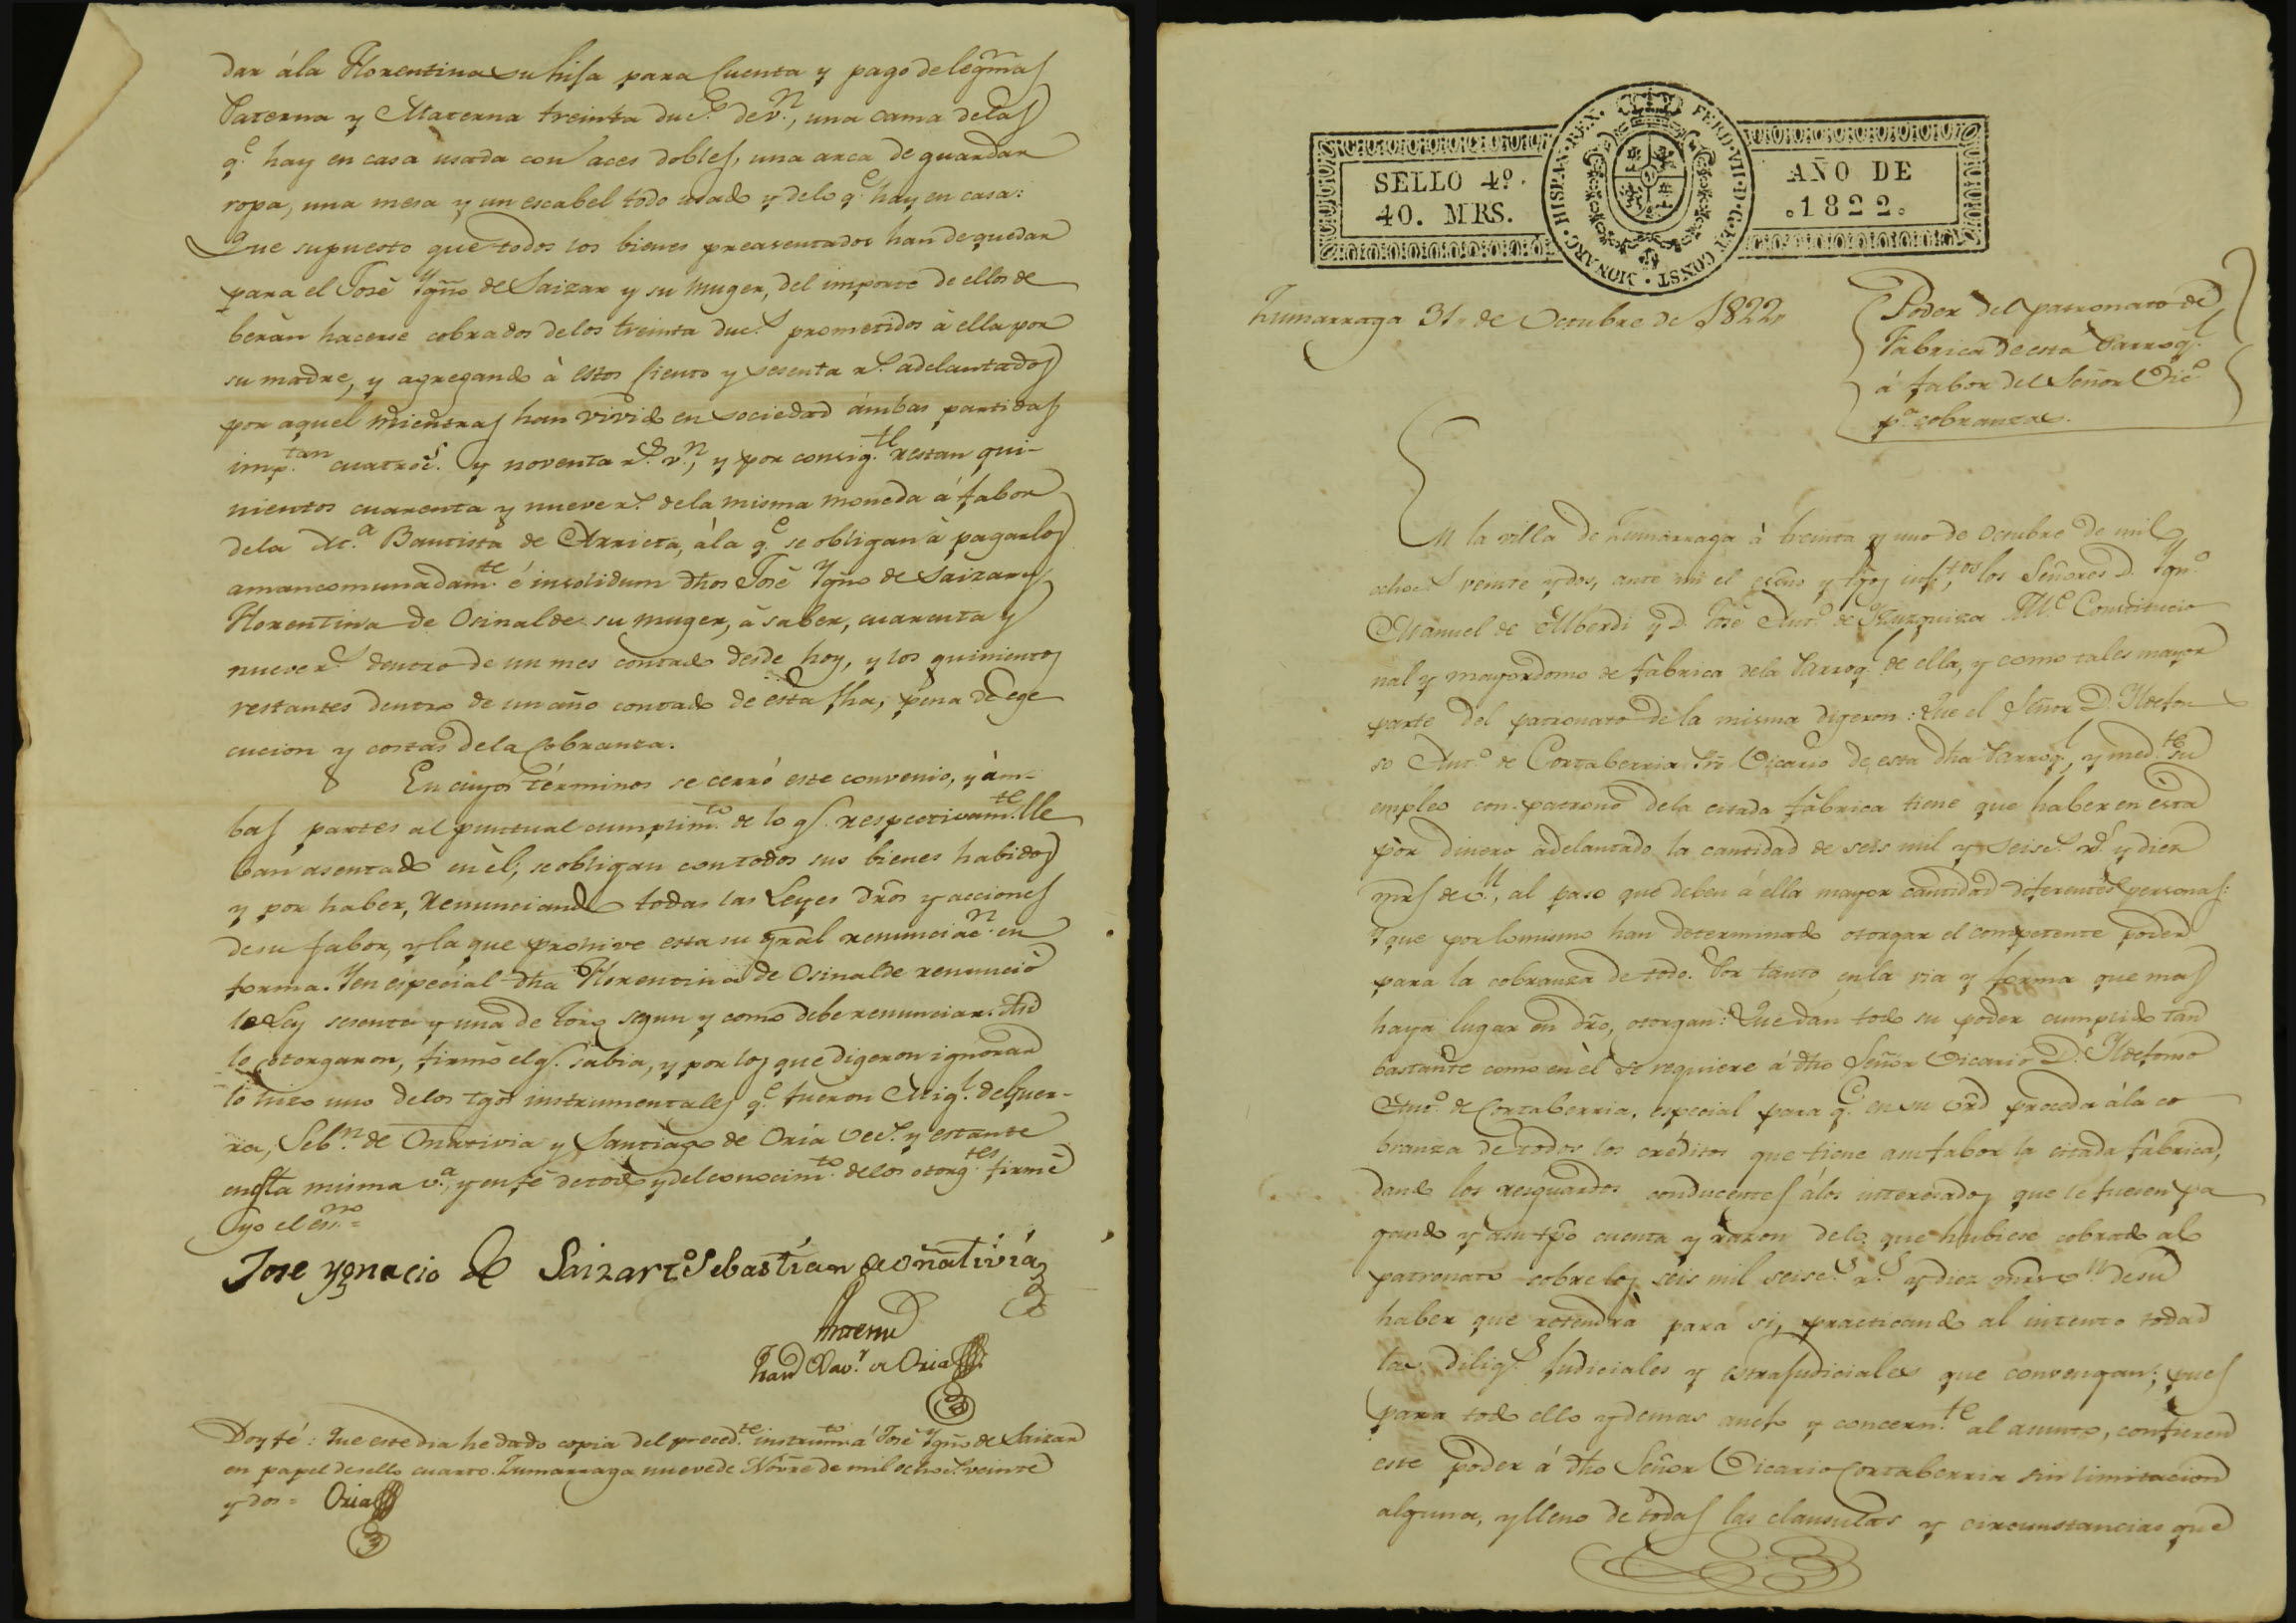 dar ála Florentina su hija para Cuenta y pago de legmas
Paterna y Materna treinta duc.s de v.n, una cama de las
q.e hay en casa usada con aces dobles, una arca de guardar
ropa, una mesa y un escabel todo usado y delo q.e hay en casa:
Que supuesto que todos los bienes preasentados han de quedar
para el José Ygño de Saizar y su muger, del importe de ellos de
berán hacerse cobrados delos treinta duc.s prometidos á ella por
su madre, y agregando à estos Ciento y sesenta r.s adelantados
por aquel mientras han vivido en sociedad ámbas partidas
imp.tan cuatroc.s y noventa r.s v.n, y por consig.te restan qui-
nientos cuarenta y nueve r.s dela misma moneda á fabor
dela M.a Bautista de Arrieta, ála q.e se obligan à pagarlos
amancomunadam.te é insolidum dhos José Ygño de Saizar y
Florentina de Osinalde su muger, à saber, cuarenta y
nueve r.s dentro de un mes contado desde hoy, y los quinientos
restantes dentro de un año contado de esta fha, pena de ege
cucion y costas dela Cobranza.
En cuyos términos se cerró este convenio, y ám-
bas partes al puntual cumplim.to de lo q.e respectivam.te lle
ban asentado en èl, se obligan con todos sus bienes habidos
y por haber, renunciando todas las Leyes dros y acciones
de su fabor, y la que prohive esta su gral renunciac.n en
forma. Y en especial dha Florentina de Osinalde renunció
la Ley sesenta y una de Toro segun y como debe renunciar. Asi
lo otorgaron, firmó el q.e sabia, y por los que digeron ignorar
lo hizo uno delos tgos instrumentales q.e fueron Mig.l de Guer-
ra, Seb.n de Oñativia y Santiago de Oria vec.s y estante
en esta misma v.a, y en fé de todo y del conocim.to delos otorg.tes firmé
yo el ess.no =
Jose ygnacio de Saizar Sebastian de oñativia
Antemi
Juan Xav.r de Oria
Doy fé: Que este dia he dado copia del preced.te instrum.to á José Ygño de Saizar
en papel de sello cuarto. Zumarraga nueve de Novre de mil ochoc.s veinte
y dos = Oria
SELLO 4º.
40. MRS.
HISPAN·REX·
FERD·VII·D·G·ET CONST·MONARC·
AÑO DE
1822.
Zumarraga 31,, de Octubre de 1822,,
Poder del patronato de
Fabrica de esta Parroq.l
á fabor del Señor Vic.o
p.a cobranzas.
En la villa de Zumarraga à treinta y uno de Octubre de mil
ochoc.s veinte y dos, ante mi el esçno y tgos infr.tos los Señores D. Ygn.o
Manuel de Alberdi y D. José Ant.o de Yzurquiza Al.e Constitucio
nal y mayordomo de fabrica dela Parroq.l de ella, y como tales mayor
parte del patronato de la misma digeron: Que el Señor D. Yldefon
so Ant.o de Cortaberria Vicario de esta dha Parroq.l, y med.te su
empleo con-patrono dela citada fábrica tiene que haber en esta
por dinero adelantado la cantidad de seis mil y seisc.s r.s y diez
mrs de v.n, al paso que deben á ella mayor cantidad diferentes personas:
Y que por lo mismo han determinado otorgar el competente poder
para la cobranza de todo. Por tanto en la via y forma que mas
haya lugar en dro, otorgan: Que dán todo su poder cumplido tan
bastante como en èl se requiere á dho Señor Vicario D. Yldefonso
Ant.o de Cortaberria, especial para q.e en su vrd proceda ála co
branza de todos los créditos que tiene asu fabor la citada fàbrica,
dando los resguardos conducentes álos interesados que le fueren pa
gando y asu tpo cuenta y razon delo que hubiese cobrado al
patronato sobre los seis mil seisc.s r.s y diez mrs v.n de su
haber que retendrà para si, practicando al intento todas
las dilig.s Judiciales y estrajudiciales que convengan; pues
para todo ello y demas anejo y concern.te al asunto, confieren
este poder á dho Señor Vicario Cortaberria sin limitacion
alguna, y lleno de todas las clausulas y circunstancias que